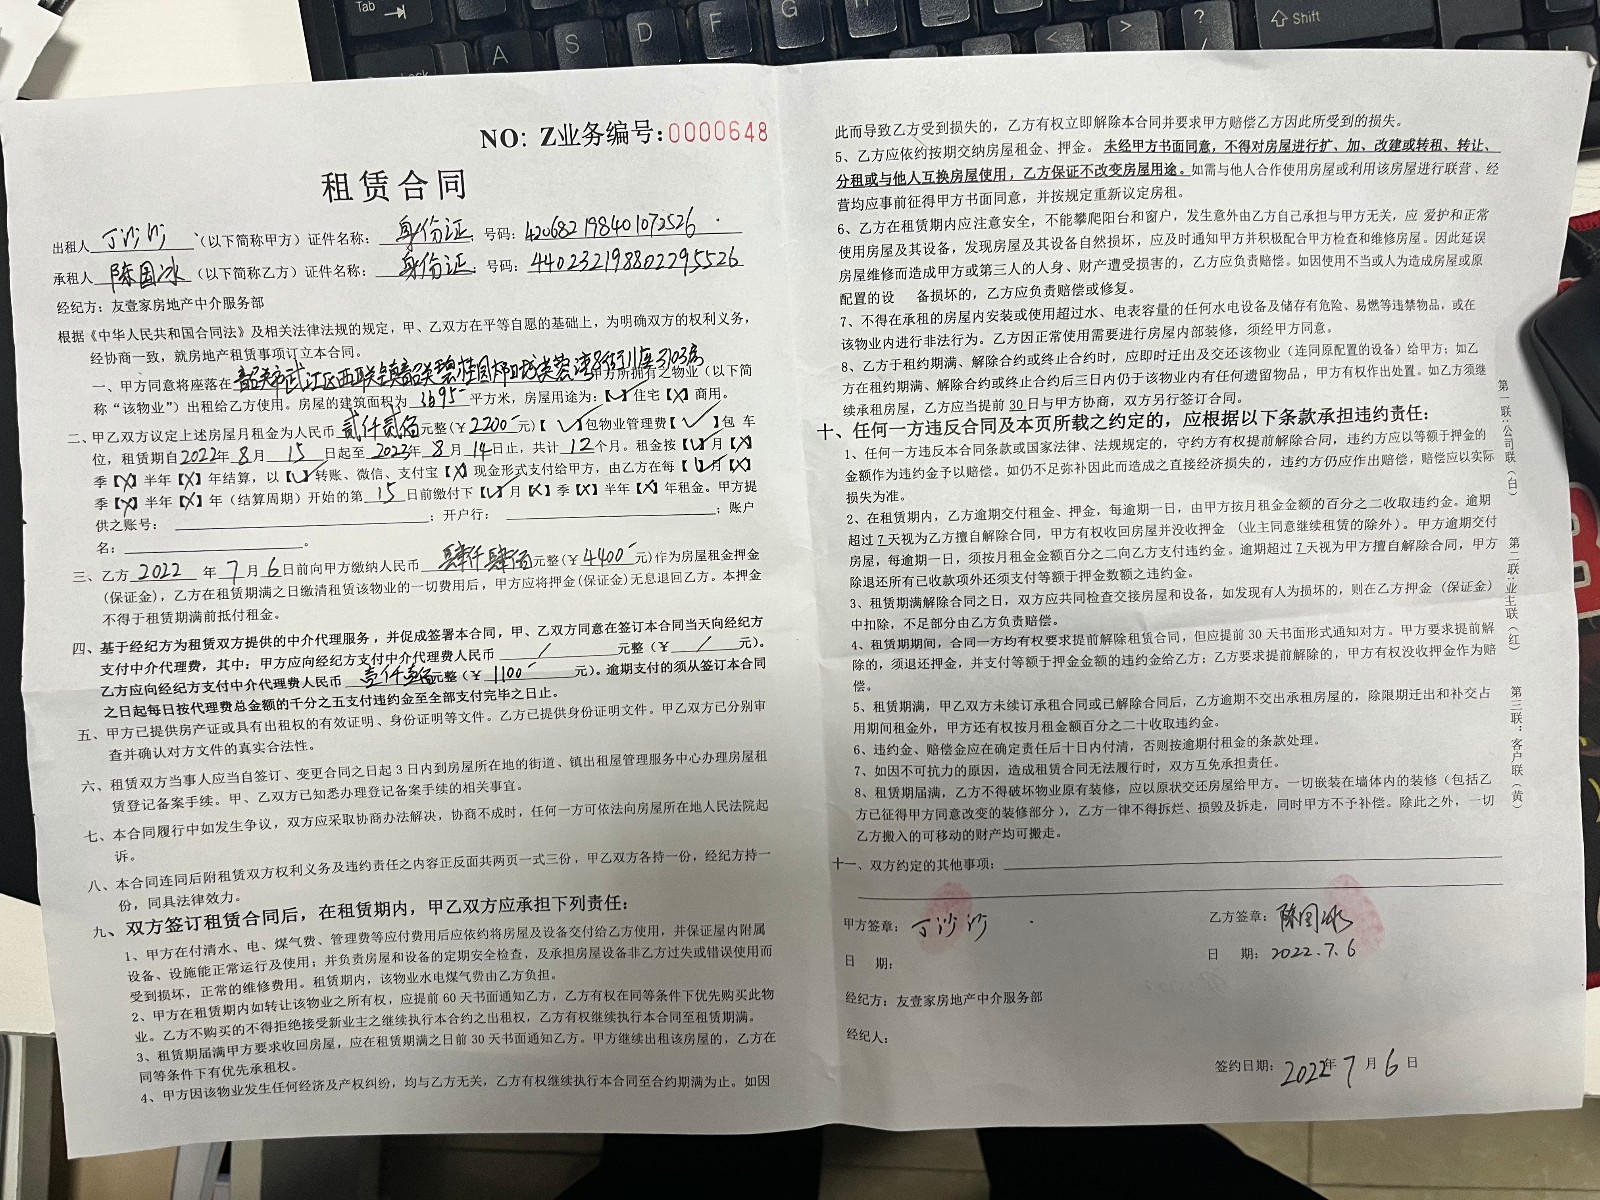 Tab
A
S
D
F
G
<
>
?
/
Shift
NO: Z业务编号:0000648
租赁合同
出租人 丁沙沙 (以下简称甲方) 证件名称: 身份证 号码: 420682198401072526
承租人 陈国冰 (以下简称乙方) 证件名称: 身份证 号码: 440232198802295526
经纪方: 友壹家房地产中介服务部
根据《中华人民共和国合同法》及相关法律法规的规定，甲、乙双方在平等自愿的基础上，为明确双方的权利义务，
经协商一致，就房地产租赁事项订立本合同。
一、甲方同意将座落在 韶关市武江区西联镇韶关碧桂园 芙蓉湾 3103房 甲方所拥有之物业（以下简
称“该物业”）出租给乙方使用。房屋的建筑面积为 平方米，房屋用途为:【✓】住宅【X】商用。
二、甲乙双方议定上述房屋月租金为人民币 贰仟贰佰 元整(￥2200-元)【✓】包物业管理费【✓】包 车
位，租赁期自2022年8月15日起至2023年8月14日止，共计12个月。租金按【✓】月【X】
季【X】半年【X】年结算，以【✓】转账、微信、支付宝【X】现金形式支付给甲方，由乙方在每【✓】月【X】
季【X】半年【X】年（结算周期）开始的第 15 日前缴付下【✓】月【X】季【X】半年【X】年租金。甲方提
供之账号: ；开户行: ；账户
名: 。
三、乙方 2022 年 7 月 6 日前向甲方缴纳人民币 肆仟肆佰 元整(￥4400-元)作为房屋租金押金
(保证金)，乙方在租赁期满之日缴清租赁该物业的一切费用后，甲方应将押金(保证金)无息退回乙方。本押金
不得于租赁期满前抵付租金。
四、基于经纪方为租赁双方提供的中介代理服务，并促成签署本合同，甲、乙双方同意在签订本合同当天向经纪方
支付中介代理费，其中：甲方应向经纪方支付中介代理费人民币 / 元整（￥ / 元）。
乙方应向经纪方支付中介代理费人民币 壹仟壹佰 元整（￥ 1100- 元）。逾期支付的须从签订本合同
之日起每日按代理费总金额的千分之五支付违约金至全部支付完毕之日止。
五、甲方已提供房产证或具有出租权的有效证明、身份证明等文件。乙方已提供身份证明文件。甲乙双方已分别审
查并确认对方文件的真实合法性。
六、租赁双方当事人应当自签订、变更合同之日起 3 日内到房屋所在地的街道、镇出租屋管理服务中心办理房屋租
赁登记备案手续。甲、乙双方已知悉办理登记备案手续的相关事宜。
七、本合同履行中如发生争议，双方应采取协商办法解决，协商不成时，任何一方可依法向房屋所在地人民法院起
诉。
八、本合同连同后附租赁双方权利义务及违约责任之内容正反面共两页一式三份，甲乙双方各持一份，经纪方持一
份，同具法律效力。
九、双方签订租赁合同后，在租赁期内，甲乙双方应承担下列责任:
1、甲方在付清水、电、煤气费、管理费等应付费用后应依约将房屋及设备交付给乙方使用，并保证屋内附属
设备、设施能正常运行及使用；并负责房屋和设备的定期安全检查，及承担房屋设备非乙方过失或错误使用而
受到损坏，正常的维修费用。租赁期内，该物业水电煤气费由乙方负担。
2、甲方在租赁期内如转让该物业之所有权，应提前 60 天书面通知乙方，乙方有权在同等条件下优先购买此物
业。乙方不购买的不得拒绝接受新业主之继续执行本合约之出租权，乙方有权继续执行本合同至租赁期满。
3、租赁期届满甲方要求收回房屋，应在租赁期满之日前 30 天书面通知乙方。甲方继续出租该房屋的，乙方在
同等条件下有优先承租权。
4、甲方因该物业发生任何经济及产权纠纷，均与乙方无关，乙方有权继续执行本合同至合约期满为止。如因
此而导致乙方受到损失的，乙方有权立即解除本合同并要求甲方赔偿乙方因此所受到的损失。
5、乙方应依约按期交纳房屋租金、押金。未经甲方书面同意，不得对房屋进行扩、加、改建或转租、转让、
分租或与他人互换房屋使用，乙方保证不改变房屋用途。如需与他人合作使用房屋或利用该房屋进行联营、经
营均应事前征得甲方书面同意，并按规定重新议定房租。
6、乙方在租赁期内应注意安全，不能攀爬阳台和窗户，发生意外由乙方自己承担与甲方无关，应 爱护和正常
使用房屋及其设备，发现房屋及其设备自然损坏，应及时通知甲方并积极配合甲方检查和维修房屋。因此延误
房屋维修而造成甲方或第三人的人身、财产遭受损害的，乙方应负责赔偿。如因使用不当或人为造成房屋或原
配置的设 备损坏的，乙方应负责赔偿或修复。
7、不得在承租的房屋内安装或使用超过水、电表容量的任何水电设备及储存有危险、易燃等违禁物品，或在
该物业内进行非法行为。乙方因正常使用需要进行房屋内部装修，须经甲方同意。
8、乙方于租约期满、解除合约或终止合约时，应即时迁出及交还该物业（连同原配置的设备）给甲方；如乙
方在租约期满、解除合约或终止合约后三日内仍于该物业内有任何遗留物品，甲方有权作出处置。如乙方须继
续承租房屋，乙方应当提前 30 日与甲方协商，双方另行签订合同。
十、任何一方违反合同及本页所载之约定的，应根据以下条款承担违约责任:
1、任何一方违反本合同条款或国家法律、法规规定的，守约方有权提前解除合同，违约方应以等额于押金的
金额作为违约金予以赔偿。如仍不足弥补因此而造成之直接经济损失的，违约方仍应作出赔偿，赔偿应以实际
损失为准。
2、在租赁期内，乙方逾期交付租金、押金，每逾期一日，由甲方按月租金金额的百分之二收取违约金。逾期
超过 7 天视为乙方擅自解除合同，甲方有权收回房屋并没收押金 （业主同意继续租赁的除外）。甲方逾期交付
房屋，每逾期一日，须按月租金金额百分之二向乙方支付违约金。逾期超过 7 天视为甲方擅自解除合同，甲方
除退还所有已收款项外还须支付等额于押金数额之违约金。
3、租赁期满解除合同之日，双方应共同检查交接房屋和设备，如发现有人为损坏的，则在乙方押金（保证金）
中扣除，不足部分由乙方负责赔偿。
4、租赁期期间，合同一方均有权要求提前解除租赁合同，但应提前 30 天书面形式通知对方。甲方要求提前解
除的，须退还押金，并支付等额于押金金额的违约金给乙方；乙方要求提前解除的，甲方有权没收押金作为赔
偿。
5、租赁期满，甲甲乙双方未续订承租合同或已解除合同后，乙方逾期不交出承租房屋的，除限期迁出和补交占
用期间租金外，甲方还有权按月租金额百分之二十收取违约金。
6、违约金、赔偿金应在确定责任后十日内付清，否则按逾期付租金的条款处理。
7、如因不可抗力的原因，造成租赁合同无法履行时，双方互免承担责任。
8、租赁期届满，乙方不得破坏物业原有装修，应以原状交还房屋给甲方。一切嵌装在墙体内的装修（包括乙
方已征得甲方同意改变的装修部分），乙方一律不得拆烂、损毁及拆走，同时甲方不予补偿。除此之外，一切
乙方搬入的可移动的财产均可搬走。
十一、双方约定的其他事项:
甲方签章: 丁沙沙
乙方签章: 陈国冰
日 期:
日 期: 2022.7.6
经纪方: 友壹家房地产中介服务部
经纪人:
签约日期: 2022年 7 月 6 日
第一联:公司联（白） 第二联:业主联（红） 第三联:客户联（黄）